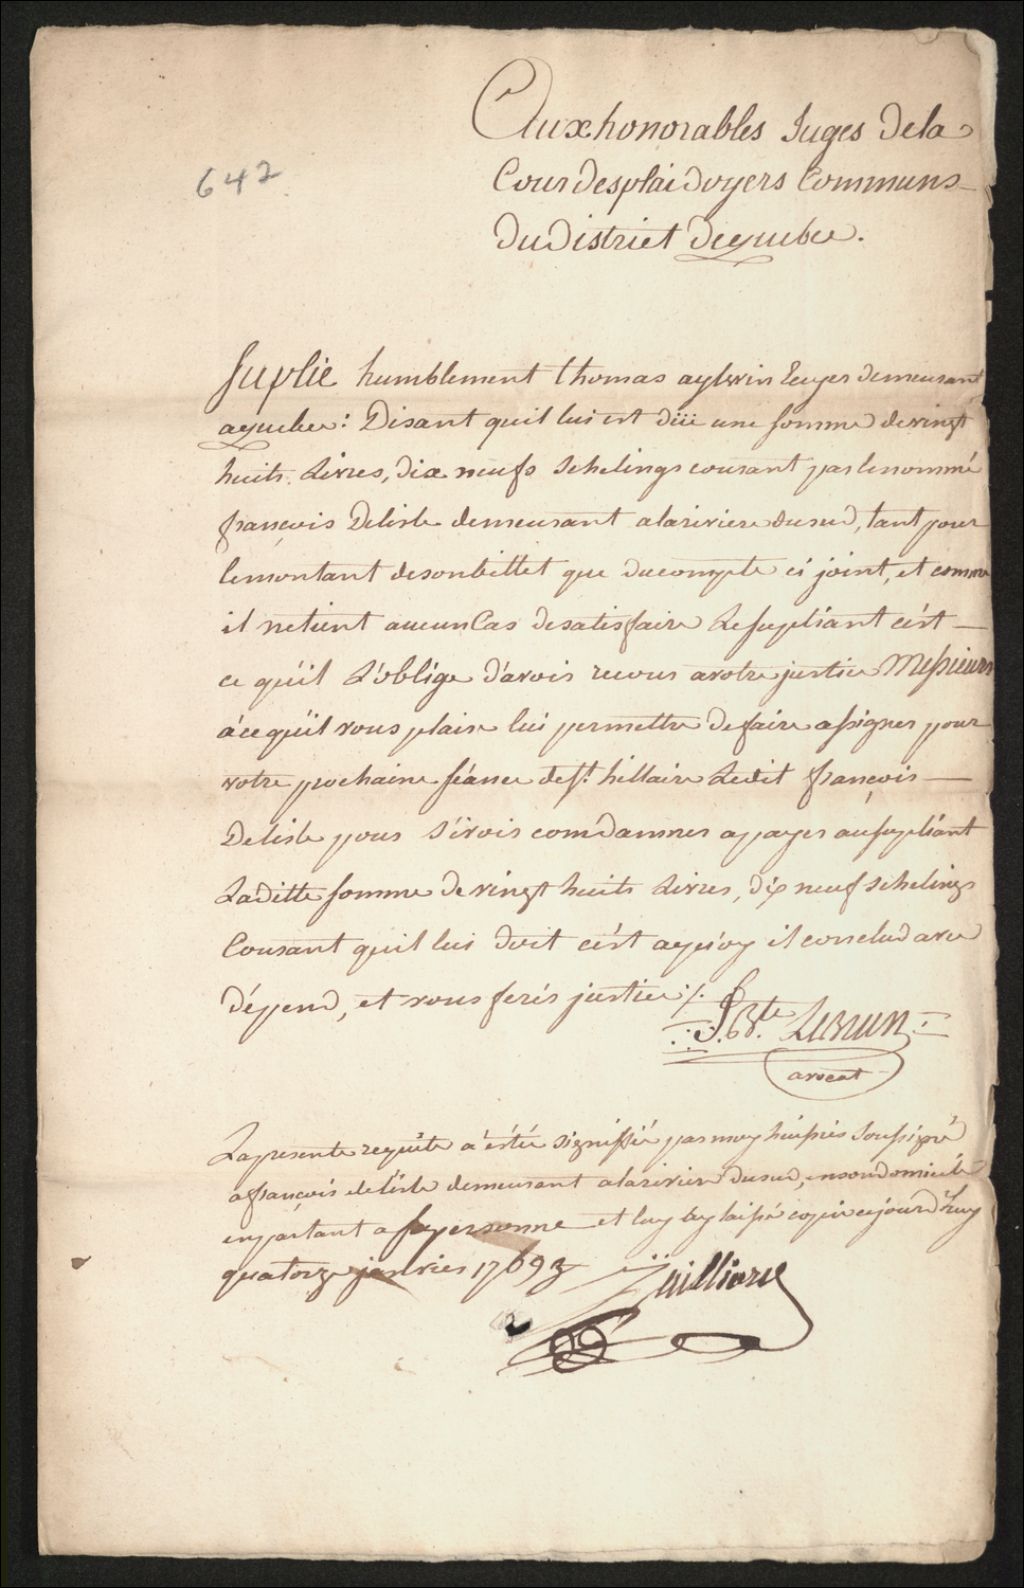 Aux honorables Juges De la
642
Cour des plaidoyers Communs
Du District De quebec.
Suplie humblement thomas aylwin Ecuyer demeurant
a quebec: Disant quil lui est düe une somme de vingt
huits Livres, dix neufs schelings courant par le nommé
françois Delisle demeurant a la riviere du sud, tant pour
le montant de son billet que du compte ci joint, et comme
il ne tient aucun Cas de satisfaire Le supliant c'est
ce qu'il L'oblige d'avoir recour a votre justice Messieurs
à ce qu'il vous plaise lui permettre de faire assigner pour
votre prochaine séance de st. hillaire Ledit françois
Delisle pour s'i voir comdamner a payer au supliant
La ditte somme de vingt huits Livres, dix neuf schelings
Courant quil lui doit c'est a qu'oy il conclud avec
dépend, et vous ferés justice ./.
J. Bte. Lebrun
avocat
La presente requête a étée signiffié par moy huissier soussigné
a françois delisle demeurant a la riviere du sud, en son domicile
en parlant a sa personne et luy ay laissé copie ce jourd'huy
quatorze janvier 1769